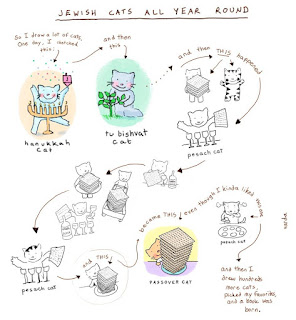 JEWISH CATS ALL YEAR ROUND
So I drew a lot of cats.
One day, I sketched
this:
and then
this
and then THIS happened
hanukkah
cat
tu bishvat
cat
pesach cat
become THIS even though I kinda liked
pesach cat
and THIS
PASSOVER CAT
pesach cat
and then I
drew hundreds
more cats,
picked my favorites,
and a book was
born.